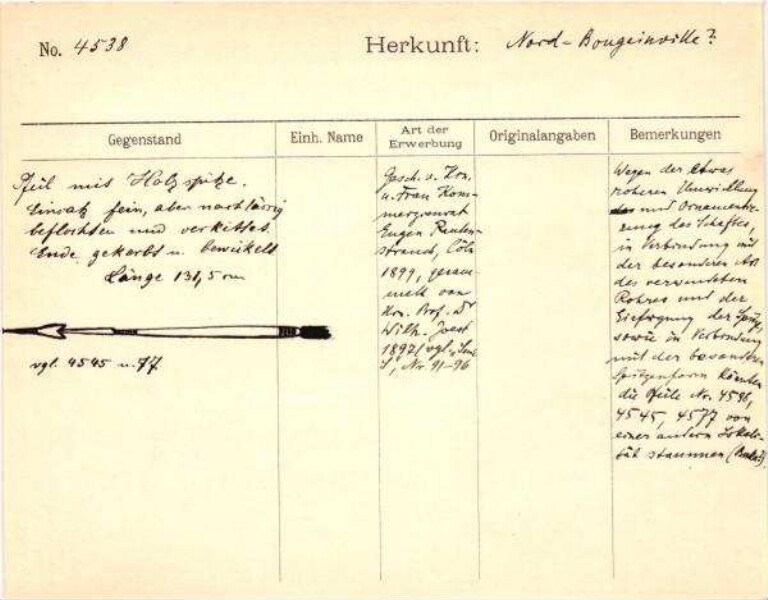 No. 4538
Herkunft: Nord-Bougeinville?
Gegenstand
Einh. Name
Art der
Erwerbung
Originalangaben
Bemerkungen
Pfeil mit Holzspitze.
Einsatz fein, aber nachlässig
beflochten und verkittet.
Ende gekerbt u. bewickelt
Länge 131,5 cm
vgl. 4545 u. 77
Gesch. v. Hrn.
u. Frau Kom-
merzienrat
Eugen Rauten-
strauch, Cöln
1899, gesam-
melt von
Hrn. Prof. Dr
Wilh. Joest
1897 (vgl.
Nr. 91-96
Wegen der etwas
roheren Umwicklung
und Ornamentie-
rung des Schaftes,
in Verbindung mit
der besonderen Art
des verwendeten
Rohres und der
Einfügung der Spitze,
sowie in Verbindung
mit der besonderen
Spitzenform könnten
die Pfeile Nr. 4538,
4545, 4577 von
einer andern Lokali-
tät stammen